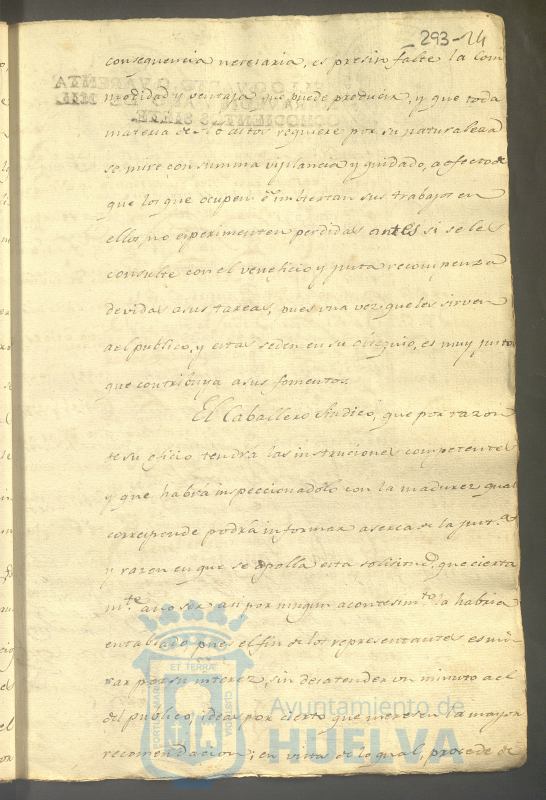 293-24
consequencia neresaria, es presiso falte la Com
modidad y ventaja que puede produciir, y que toda
materia de Abastos requiere por su naturaleza
se mire con summa vijilancia y quidado, a efecto de
que los que ocupen ô imbiertan sus trabajos en
ellos, no experimenten perdidas antes si se les
consulte con el veneficio y justa recompenza
devidas a sus tareas, pues una vez que les sirven
a el publico, y estas seden en su obsequio, es muy justo
que contribuya a sus fomentos.
El Caballero Sindico, que por razon
de su oficio tendrá las instruciones competentes
y que habrá inspeccionadolo con la madurez qual
corresponde podrá informar aserca de la just.ª
y razon en que se apolla esta solisitud, que cierta
m.te a no ser asi por ningun acontesim.to la habria
entablado pues el fin de los representantes es mi
rar por su interez, sin desatender un minuto a el
del publico, ideas por cierto que meresen la mayor
recomendacion; en vista de lo qual, procede de
PORTUS MARIS
ET TERRÆ
CUSTODIA
Ayuntamiento de
HUELVA